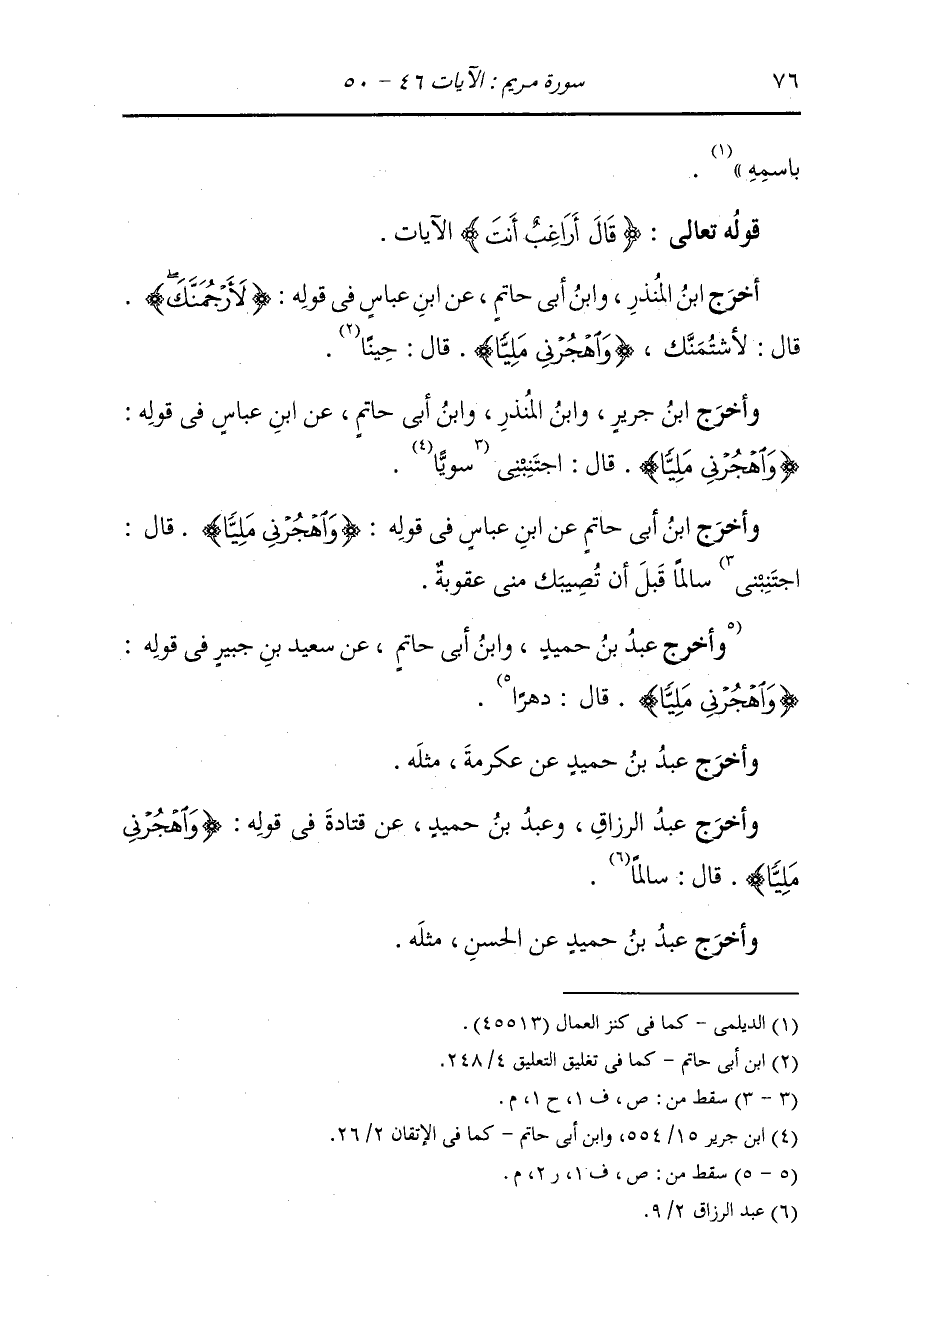 ٧٦ سورة مريم : الآيات ٤٦ - ٥٠
باسمِهِ »(١) .
قولُه تعالى : ﴿ قَالَ أَرَاغِبٌ أَنتَ ﴾ الآيات .
أخرَج ابنُ المُنذرِ ، وابنُ أبى حاتمٍ ، عن ابنِ عباسٍ فى قولِه : ﴿ لَأَرْجُمَنَّكَۖ ﴾ .
قال : لأشتُمَنَّك ، ﴿ وَٱهْجُرْنِي مَلِيًّا ﴾ . قال : حِينًا(٢) .
وأخرَج ابنُ جريرٍ ، وابنُ المُنذرِ ، وابنُ أبى حاتمٍ ، عن ابنِ عباسٍ فى قولِه :
﴿ وَٱهْجُرْنِي مَلِيًّا ﴾ . قال : اجتَنِبْنِى (٣سويًّا(٤) .
وأخرَج ابنُ أبى حاتمٍ عن ابنِ عباسٍ فى قولِه : ﴿ وَٱهْجُرْنِي مَلِيًّا ﴾ . قال :
اجتَنِبْنى٣) سالمًا قَبلَ أن تُصِيبَك منى عقوبةٌ .
(٥وأخرج عبدُ بنُ حميدٍ ، وابنُ أبى حاتمٍ ، عن سعيد بنِ جبيرٍ فى قولِه :
﴿ وَٱهْجُرْنِي مَلِيًّا ﴾ . قال : دهرًا٥) .
وأخرَج عبدُ بنُ حميدٍ عن عكرمةَ ، مثلَه .
وأخرَج عبدُ الرزاقِ ، وعبدُ بنُ حميدٍ ، عن قتادةَ فى قولِه : ﴿ وَٱهْجُرْنِي
مَلِيًّا ﴾ . قال : سالمًا(٦) .
وأخرَج عبدُ بنُ حميدٍ عن الحسنِ ، مثلَه .
(١) الديلمى - كما فى كنز العمال (٤٥٥١٣).
(٢) ابن أبى حاتم - كما فى تغليق التعليق ٤/ ٢٤٨.
(٣ - ٣) سقط من : ص ، ف ١، ح ١، م .
(٤) ابن جرير ١٥/ ٥٥٤، وابن أبى حاتم - كما فى الإتقان ٢/ ٢٦.
(٥ - ٥) سقط من : ص ، ف ١، ر ٢، م .
(٦) عبد الرزاق ٢/ ٩.